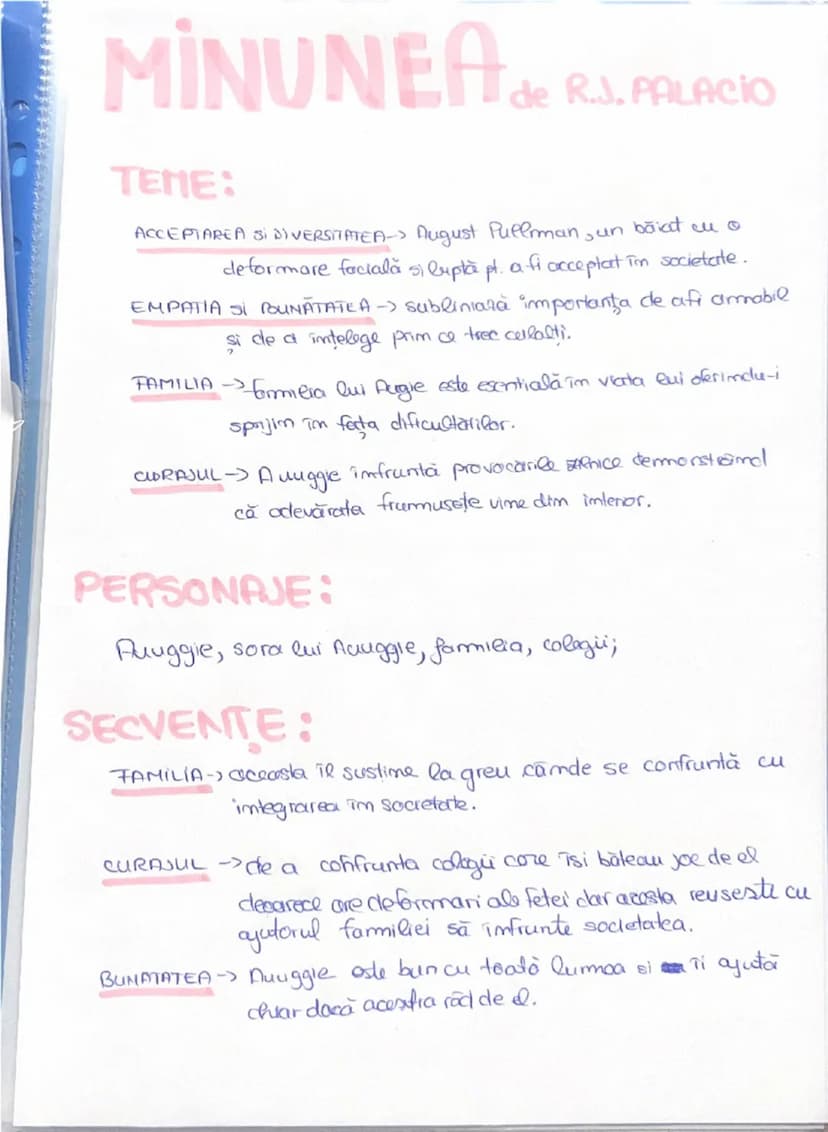 MINUNEA de R.J. PALACIO
TEME:
ACCEPTAREA SI DIVERSITATEA -> August Pullman, un băiat cu o
deformare facială si luptă pt. a fi acceptat în societate.
EMPATIA SI BUNĂTATEA -> subliniază importanța de a fi amabil
și de a întelege prim ce trec ceilalți.
FAMILIA -> familia lui Augie este esentială în viata lui oferindu-i
sprijin în fața dificultatilor.
CURAJUL -> Auuggie înfruntă provocările zilnice demonstrând
că adevărata frumusețe vine din interior.
PERSONAJE:
Auuggie, sora lui Auuggie, familia, colegii;
SECVENȚE:
FAMILIA -> aceasta îl sustine la greu cânde se confruntă cu
integrarea în societate.
CURAJUL -> de a confrunta colegii care îsi băteau joc de el
deoarece are deformari ale fetei dar acesta reuseste cu
ajutorul familiei să înfrunte societatea.
BUNATATEA -> Auuggie este bun cu toată lumea si îi ajută
chiar dacă aceștia râd de el.